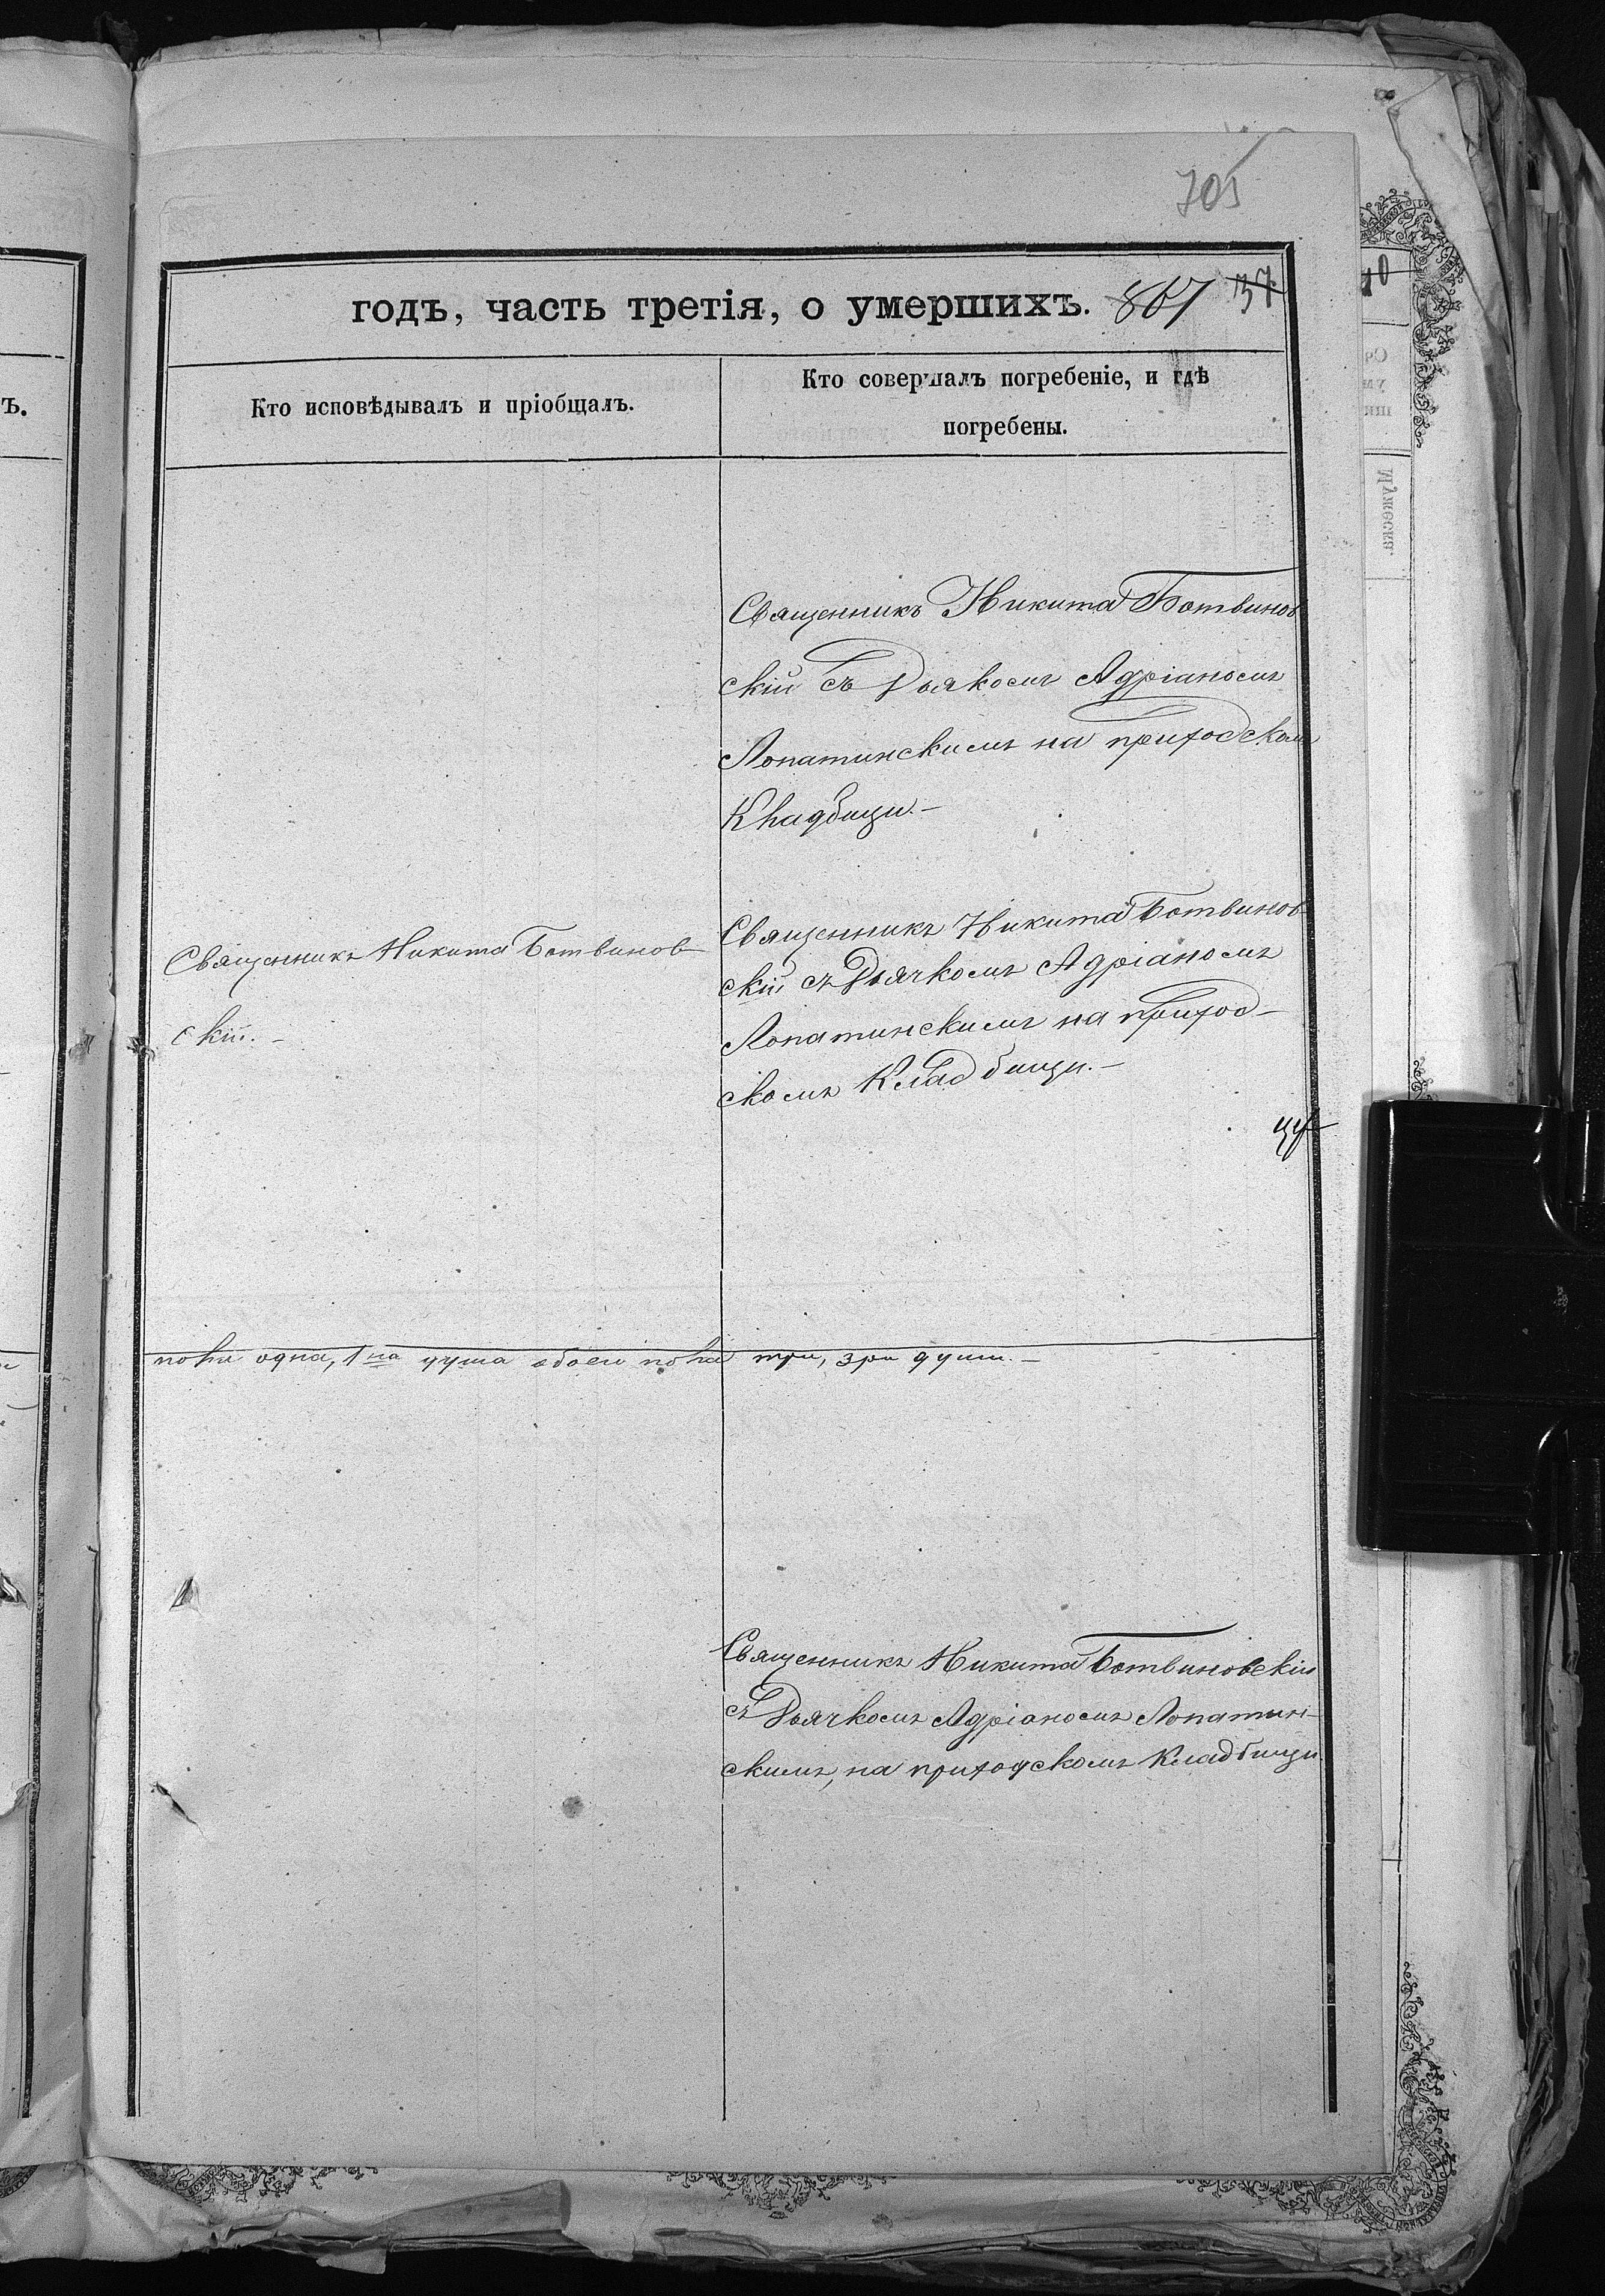 705
годъ, часть третія, о умершихъ. 867 37
Кто исповѣдывалъ и пріобщалъ.
Кто совершалъ погребеніе, и гдѣ
погребены.
Священникъ Никита Ботвинов
скій съ Дьякомъ Адріаномъ
Лопатинскимъ на приходскомъ
Кладбищи. –
Священникъ Никита Ботвинов
скій. –
Священникъ Никита Ботвинов
скій съ Дьячкомъ Адріаномъ
Лопатинскимъ на приход–
скомъ Кладбищи. –
пола одна, 1на душа обоего пола три, 3ри души. –
Священникъ Никита Ботвиновскій
съ Дьячкомъ Адріаномъ Лопатин–
скимъ, на приходскомъ Кладбищи
ъ.
10
Мужеска.